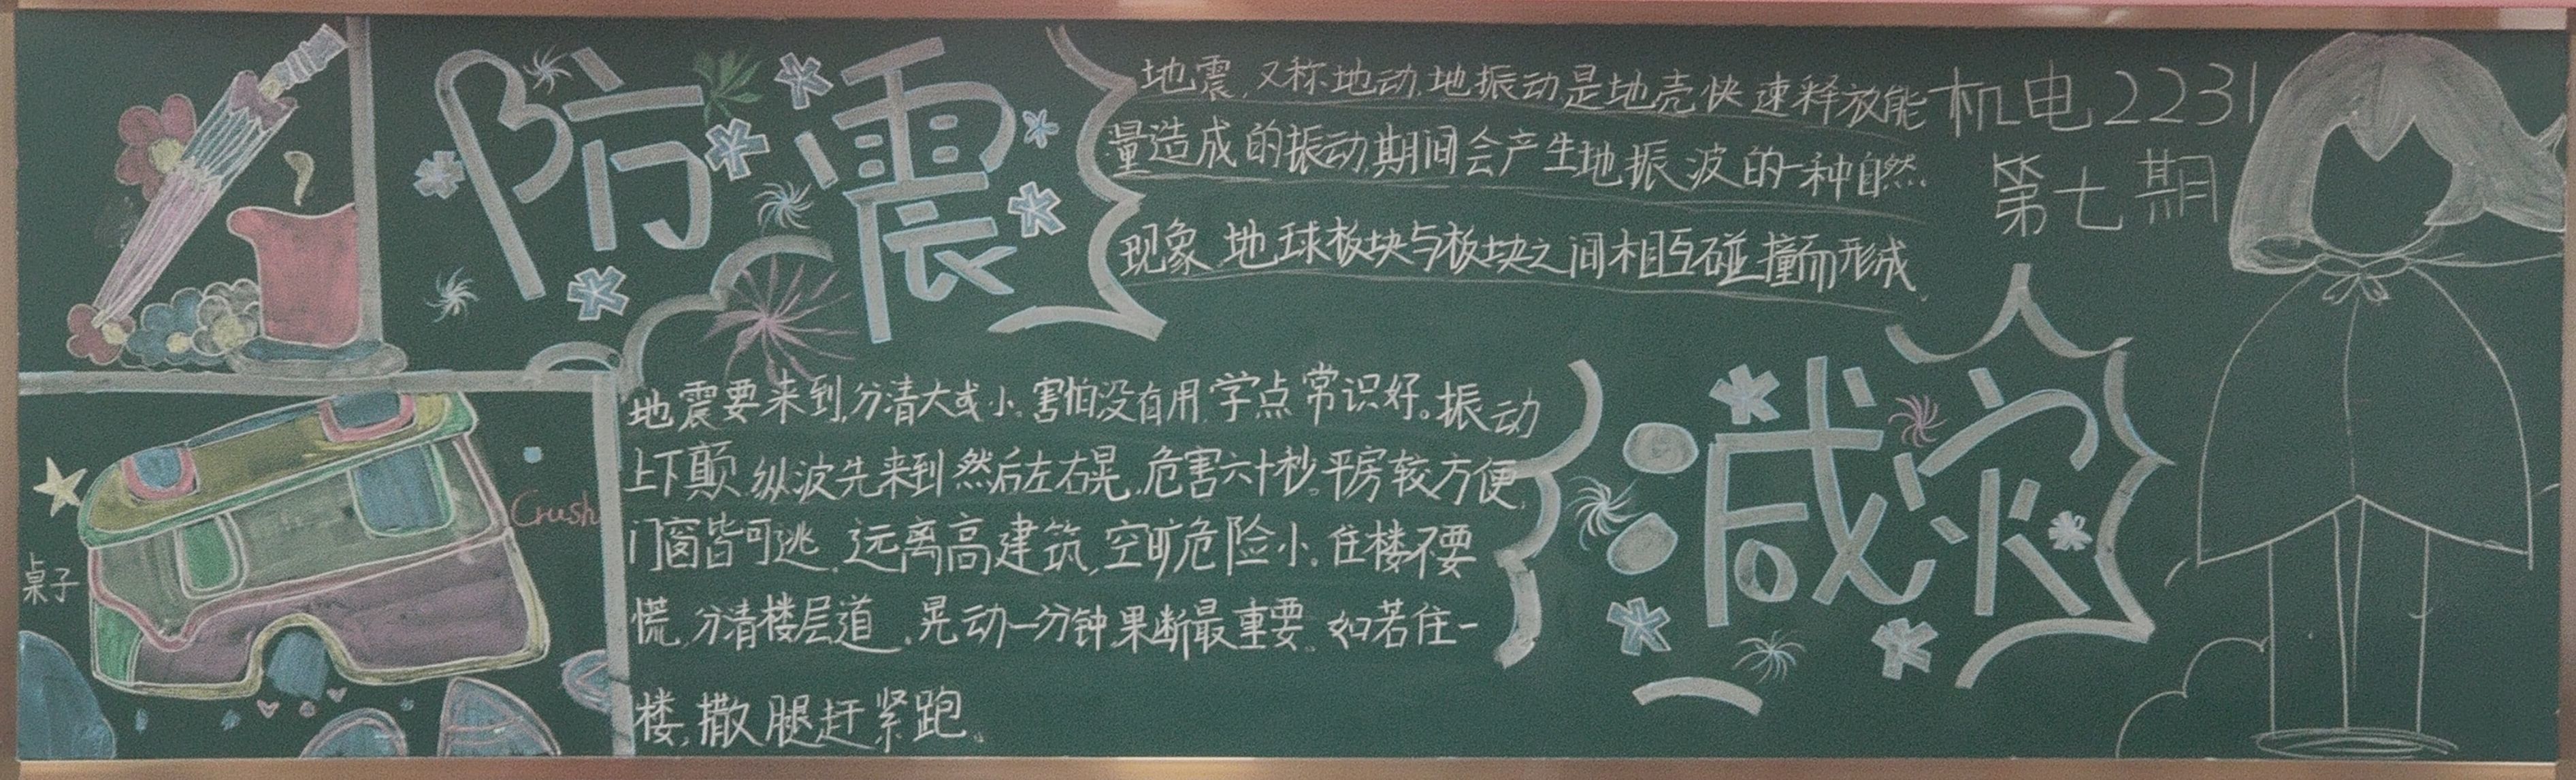 防震
地震，又称地动，地振动，是地壳快速释放能
量造成的振动，期间会产生地振波的一种自然
现象，地球板块与板块之间相互碰撞而形成
机电2231
第七期
地震要来到，分清大或小。害怕没有用，学点常识好。振动
上下颠，纵波先来到，然后左右晃，危害六十秒。平房较方便，
门窗皆可逃，远离高建筑，空旷危险小。住楼不要
慌，分清楼层道，晃动一分钟，果断最重要。如若住一
楼，撒腿赶紧跑。
减灾
Crush
桌子